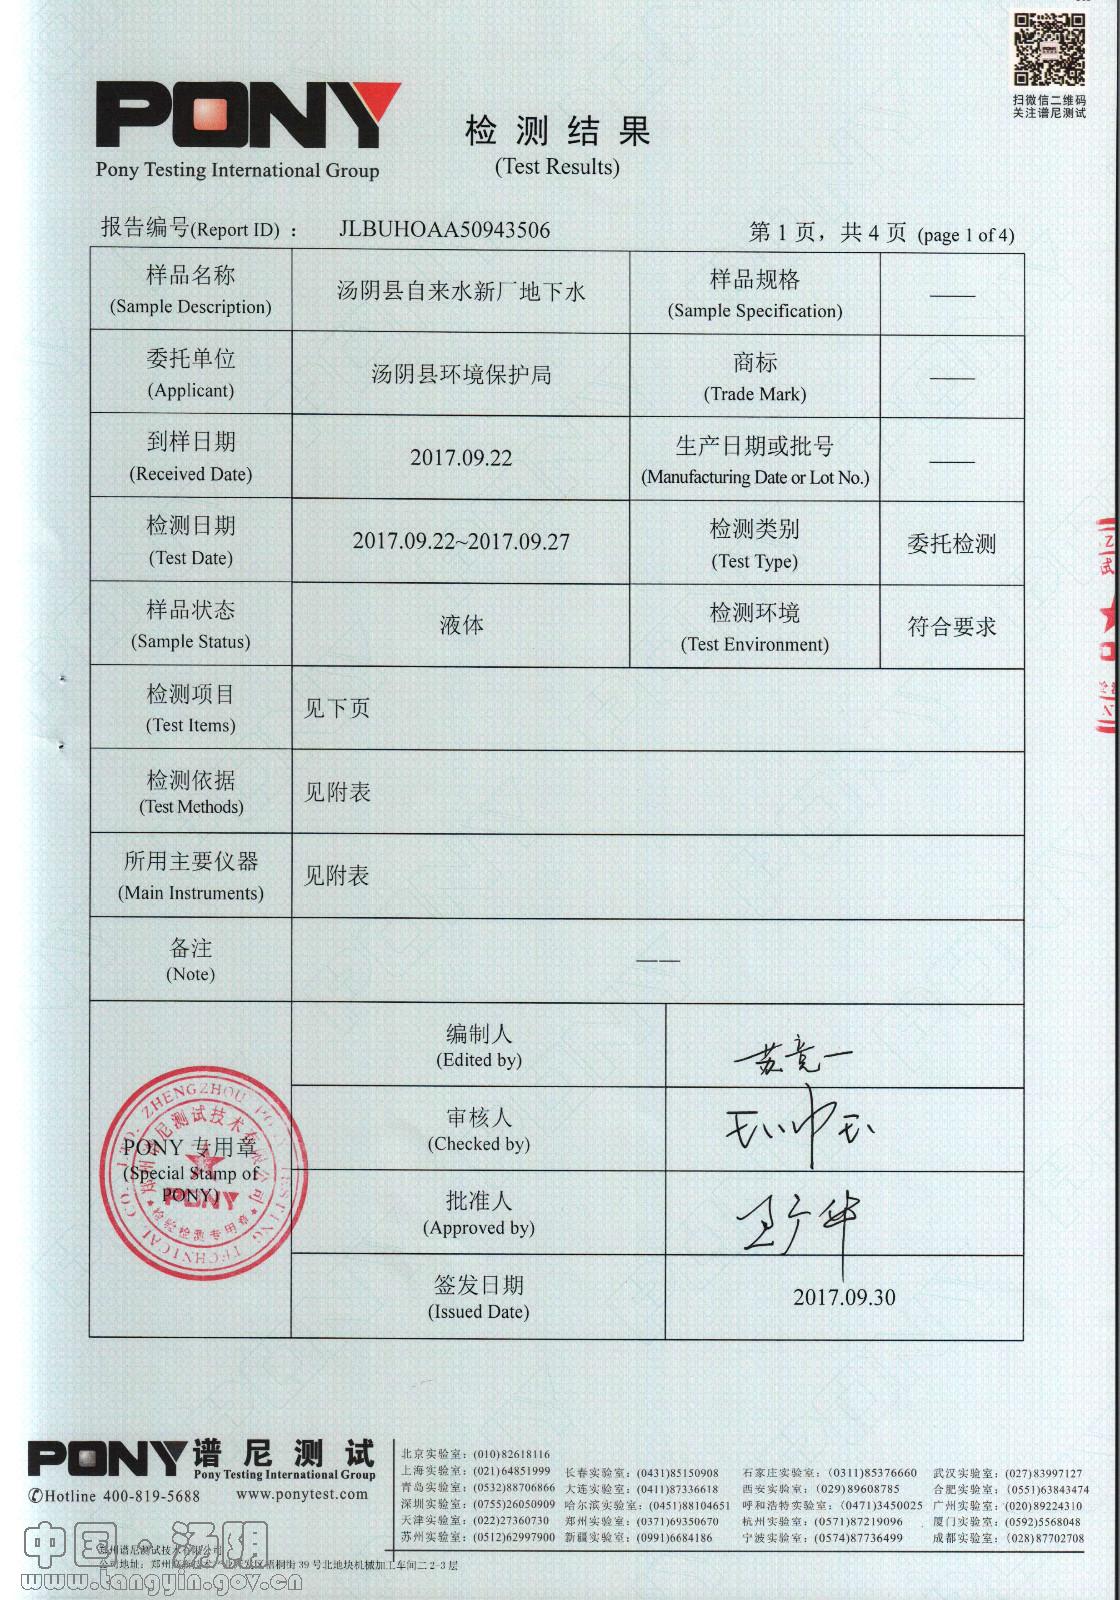 扫微信二维码
关注谱尼测试
PONY
Pony Testing International Group
检测结果
(Test Results)
报告编号(Report ID) ： JLBUHOAA50943506
第 1 页，共 4 页 (page 1 of 4)
样品名称
(Sample Description)
汤阴县自来水新厂地下水
样品规格
(Sample Specification)
——
委托单位
(Applicant)
汤阴县环境保护局
商标
(Trade Mark)
——
到样日期
(Received Date)
2017.09.22
生产日期或批号
(Manufacturing Date or Lot No.)
——
检测日期
(Test Date)
2017.09.22~2017.09.27
检测类别
(Test Type)
委托检测
样品状态
(Sample Status)
液体
检测环境
(Test Environment)
符合要求
检测项目
(Test Items)
见下页
检测依据
(Test Methods)
见附表
所用主要仪器
(Main Instruments)
见附表
备注
(Note)
——
PONY 专用章
(Special Stamp of
PONY)
郑州谱尼测试技术有限公司
PONY
检验检测专用章
编制人
(Edited by)
审核人
(Checked by)
批准人
(Approved by)
签发日期
(Issued Date)
2017.09.30
PONY 谱尼测试
Pony Testing International Group
Hotline 400-819-5688 www.ponytest.com
北京实验室：(010)82618116
上海实验室：(021)64851999 长春实验室：(0431)85150908 石家庄实验室：(0311)85376660 武汉实验室：(027)83997127
青岛实验室：(0532)88706866 大连实验室：(0411)87336618 西安实验室：(029)89608785 合肥实验室：(0551)63843474
深圳实验室：(0755)26050909 哈尔滨实验室：(0451)88104651 呼和浩特实验室：(0471)3450025 广州实验室：(020)89224310
天津实验室：(022)27360730 郑州实验室：(0371)69350670 杭州实验室：(0571)87219096 厦门实验室：(0592)5568048
苏州实验室：(0512)62997900 新疆实验室：(0991)6684186 宁波实验室：(0574)87736499 成都实验室：(028)87702708
郑州谱尼测试技术有限公司
公司地址：郑州高新技术产业开发区梧桐街39号北地块机械加工车间二2-3层
中国·汤阴
www.tangyin.gov.cn